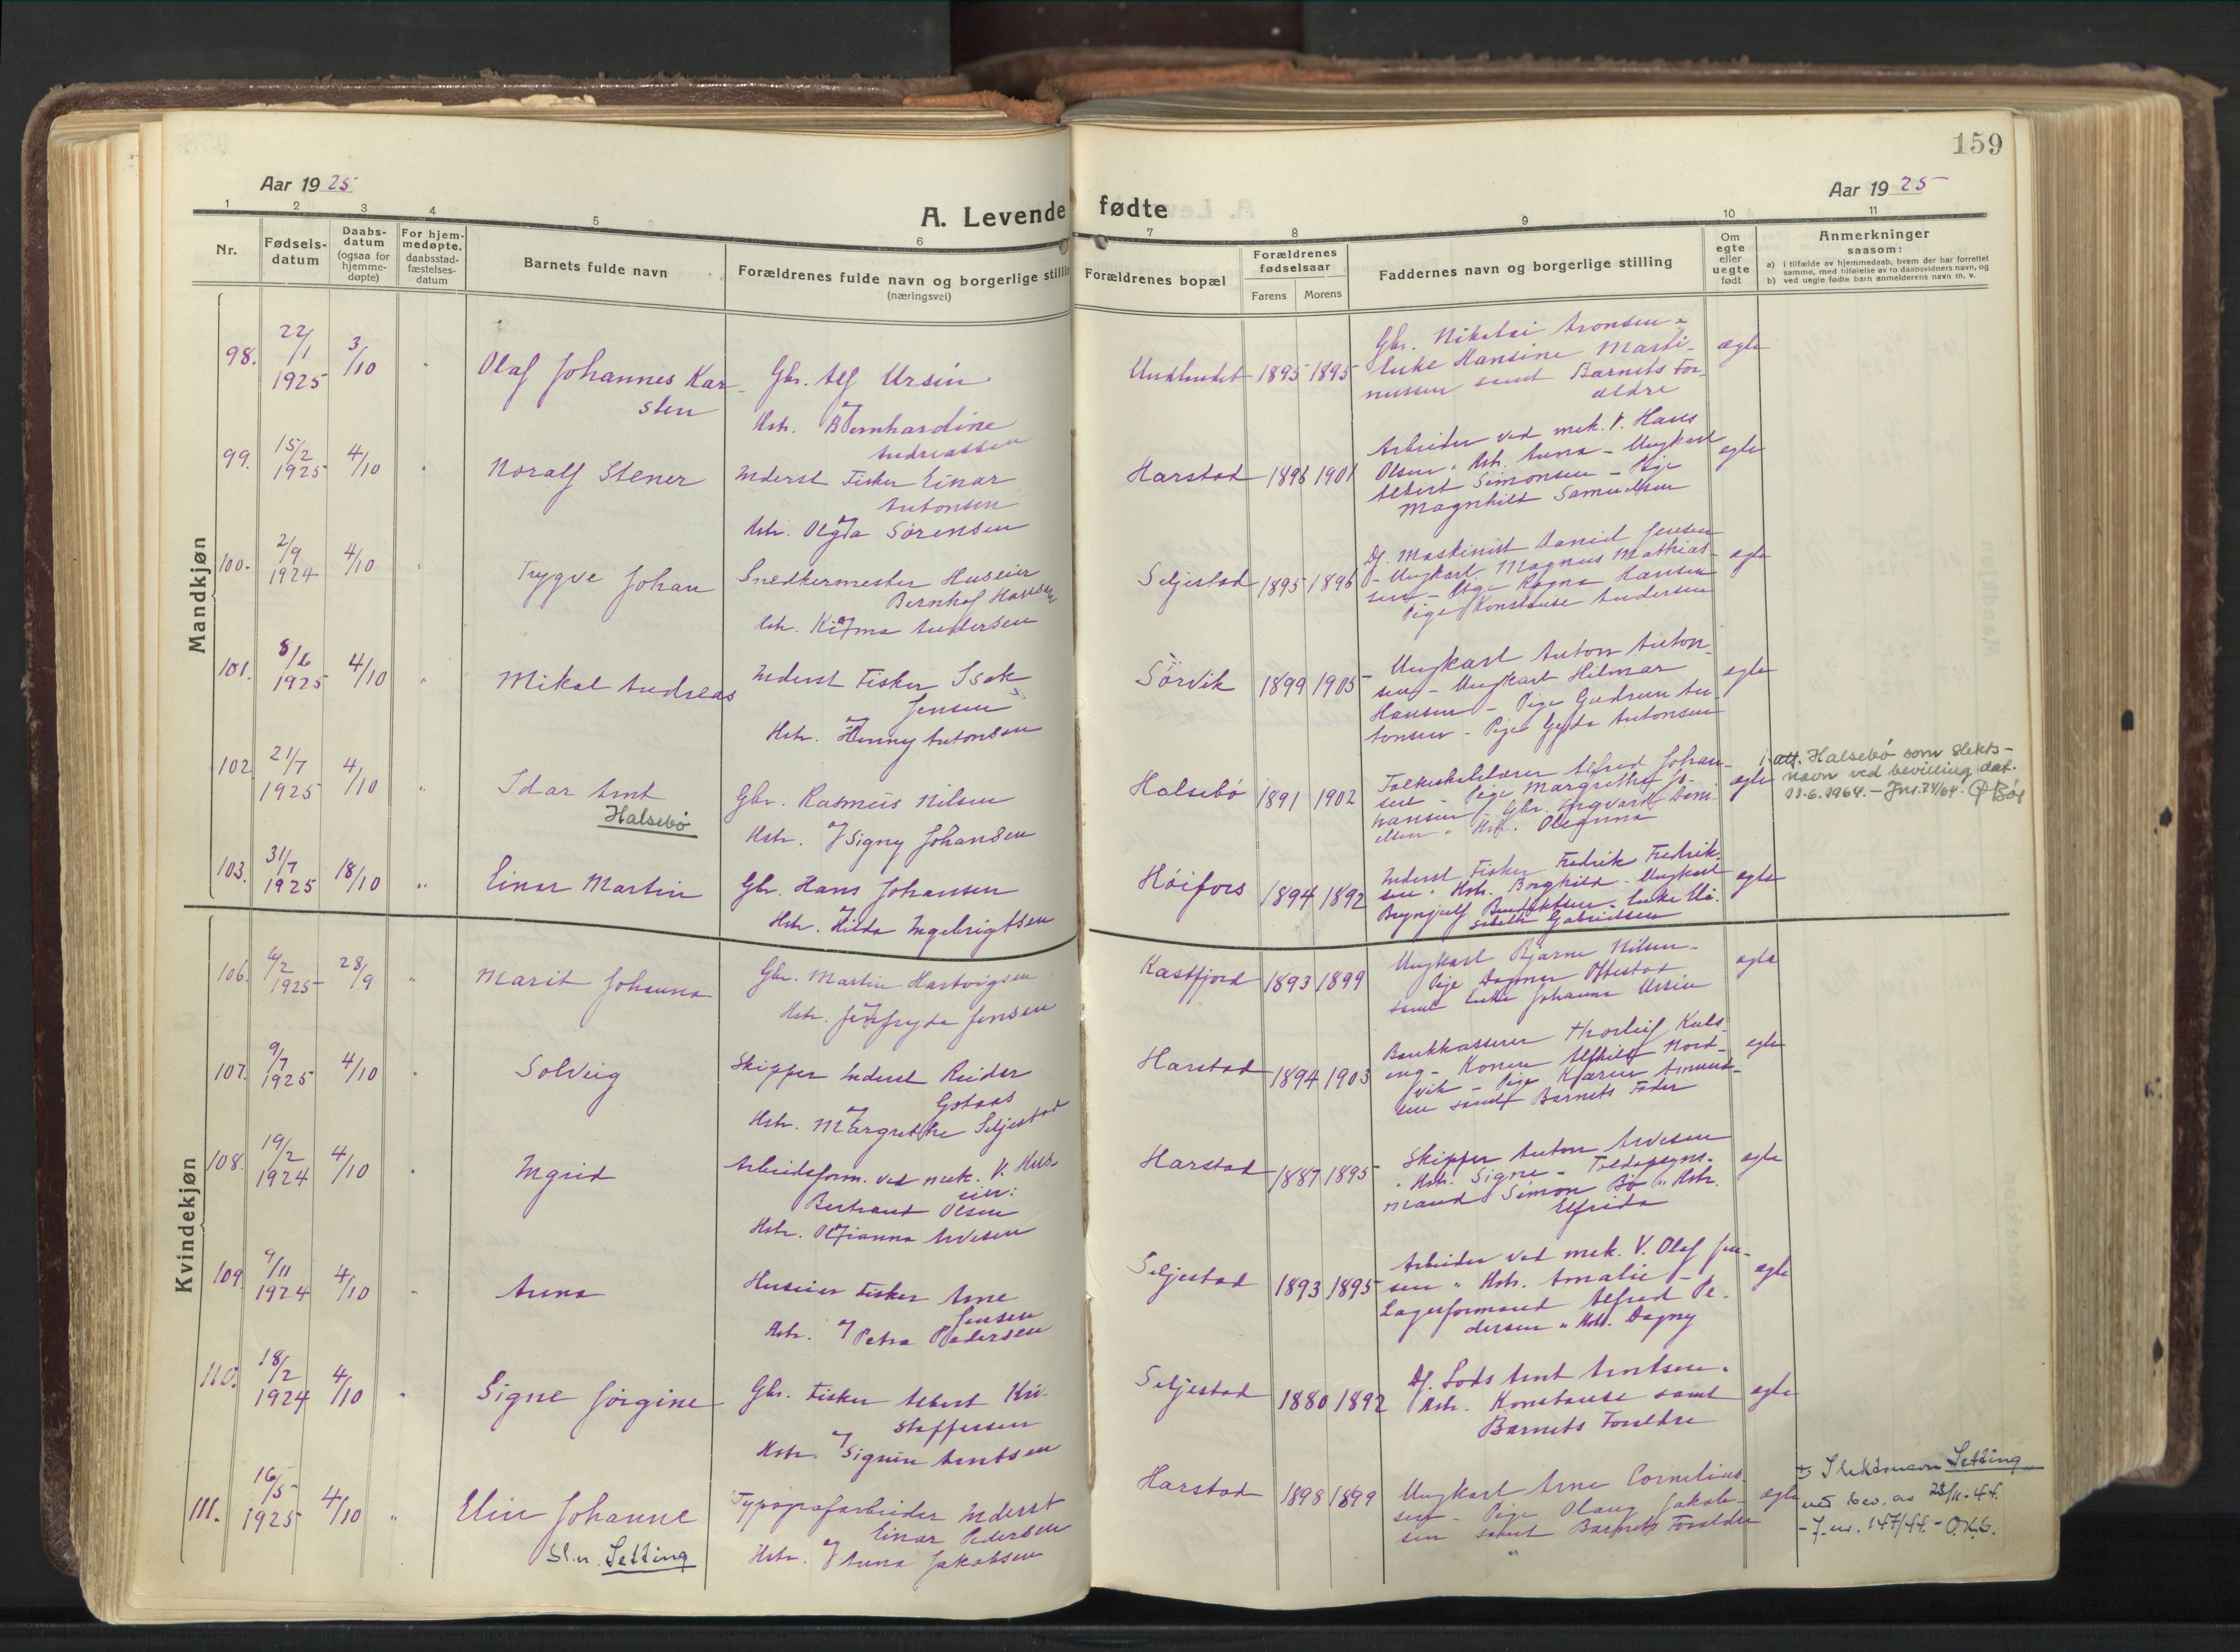 159
Aar 1925
Aar 1925
A. Levende fødte
1 2 3 4 5 6 7 8 9 10 11
Nr.
Fødsels-
datum
Daabs-
datum
(ogsaa for
hjemme-
døpte)
For hjem-
medøpte,
daabsstad-
fæstelses-
datum
Barnets fulde navn
Forældrenes fulde navn og borgerlige stillin
(næringsvei)
Forældrenes bopæl
Forældrenes
fødselsaar
Farens
Morens
Faddernes navn og borgerlige stilling
Om
egte
eller
uegte
født
Anmerkninger
saasom:
a) i tilfælde av hjemmedaab, hvem der har forrettet
samme, med tilføielse av to daabsvidners navn, og
b) ved uegte fødte barn anmelderens navn m. v.
Mandkjøn
98. 22/1 1925 3/10 Olaf Johannes Kar-
sten
Gbr. Alf Ursin
Hstr. Bernhardine
Andreassen
Undlandet 1895 1895
Gbr. Nikolai Aronsen "
Enke Hansine Marti-
nussen samt Barnets For-
ældre
egte
99. 15/2 1925 4/10 Noralf Stener
Inderst Fisker Einar
Antonsen
Hstr. Olga Sørensen
Harstad 1896 1901
Arbeider ved mek. V. Hans
Olsen " Hstr. Anna - Ungkarl
Albert Simonsen - Pige
Magnhild Samuelsen
egte
100. 2/9 1924 4/10 Trygve Johan
Snedkermester Huseier
Bernhof Hansen
Hstr. Kitma Andersen
Seljestad 1895 1896
Df. Maskinist Daniel Jensen
- Ungkarl Magnus Mathias-
sen - Pige Ragna Hansen
Pige Konstanse Andersen
egte
101. 8/6 1925 4/10 " Mikal Andreas
Inderst Fisker Isak
Jensen
Hstr. Henny Antonsen
Sørvik 1899 1905
Ungkarl Anton Anton-
sen - Ungkarl Hilmar
Hansen - Pige Gudrun An-
tonsen - Pige Gyda Antonsen
egte
102 21/7 1925 4/10 " Idar Arnt
Halsebø
Gbr. Rasmus Nilsen
Hstr. Signy Johansen
Halsebø 1891 1902
Folkeskolelærer Alfred Johan-
sen - Pige Margrethe Jo-
hansen - Gbr. Ingvard Dani-
elsen " Hstr. Olegunna
egte
att. Halsebø som slekts-
navn ved bevilling dat.
11.6.1964. - Jnr. 74/64.
103. 31/7 1925 18/10 " Einar Martin
Gbr. Hans Johansen
Hstr. Hilda Ingebrigtsen
Høifors 1894 1892
Inderst Fisker Fredrik Fredrik-
sen " Hstr. Borghild - Ungkarl
Brynjulf Benediktsen - Enke Eli-
sabeth Gabrielsen
egte
Kvindekjøn
106. 6/2 1925 28/9 " Marit Johanna
Gbr. Martin Hartvigsen
Hstr. Jenfryda Jensen
Kastfjord 1893 1899
Ungkarl Bjarne Nilsen -
Pige Dagmar Offestad
samt Enke Johanna Ursin
egte
107. 9/7 1925 4/10 Solveig
Skipper Inderst Reidar
Gstaas
Hstr. Margrethe Seljestad
Harstad 1894 1903
Bankkasserer Thorleif Kuls-
eng - Konen Alfhild Nord-
vik - Pige Karen Amund-
sen samt Barnets Fader
egte
108. 19/2 1924 4/10 Ingrid
Arbeidsform. ved mek. V. Hus-
eier:
Bertrand Olsen
Hstr. Olianna Arvesen
Harstad 1887 1895
Skipper Anton Arvesen
" Hstr. Signe - Toldopsyns-
mand Simon Bø " Hstr.
Alfrida
egte
109 9/11 1924 4/10 Anna
Huseier Fisker Arne
Jensen
Hstr. Petra Pedersen
Seljestad 1893 1895
Arbeider ved mek. V. Olaf Jen-
sen " Hstr. Amalie -
Lagerformand Alfred Pe-
dersen " Hstr. Dagny
egte
110. 18/2 1924 4/10 " Signe Jørgine
Gbr. Fisker Albert Kri-
stoffersen
Hstr. Signin Arntsen
Seljestad 1880 1892
Df. Lods Arnt Arntsen "
Hstr. Konstanse samt
Barnets Forældre
egte
111. 16/5 1925 4/10 " Elin Johanne
Sl.n. Setting
Typografarbeider Inderst
Einar Pedersen
Hstr. Anna Jakobsen
Harstad 1898 1899
Ungkarl Arne Cornelius-
sen - Pige Olaug Jakob-
sen samt Barnets Forældre
egte
Slektsnavn Setting
ved bev. av 23/11-44.
- J.nr. 147/44. - O.K.S.